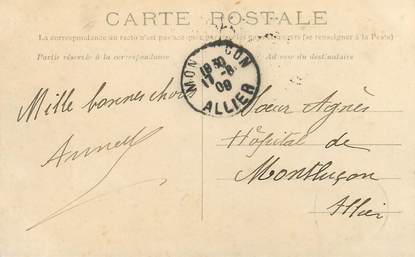 CARTE POSTALE
La correspondance au recto n'est pas acceptée par tous les pays étrangers (se renseigner à la Poste)
Partie réservée à la correspondance
Adresse du destinataire
MON CON
19 30
17-8
09
ALLIER
Mille bonnes choses
Sœur Agnès
Hôpital de
Montluçon
Allier